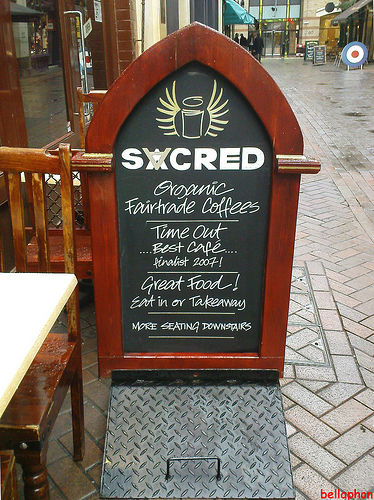 SACRED
Organic
Fairtrade Coffees
Time Out
....Best Café....
finalist 2007!
Great Food!
Eat in or Takeaway
MORE SEATING DOWNSTAIRS
bellaphon